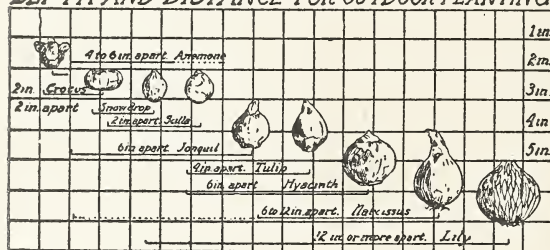 DEPTH AND DISTANCE FOR OUTDOOR PLANTING
1 in.
4 to 6 in. apart Anemone
2 in.
2 in. Crocus
3 in.
2 in. apart Snowdrop
2 in. apart. Scilla
4 in
6 in apart Jonquil
5 in.
4 in apart. Tulip
6 in. apart Hyacinth
6 to 12 in. apart. Narcissus
12 in or more apart. Lily